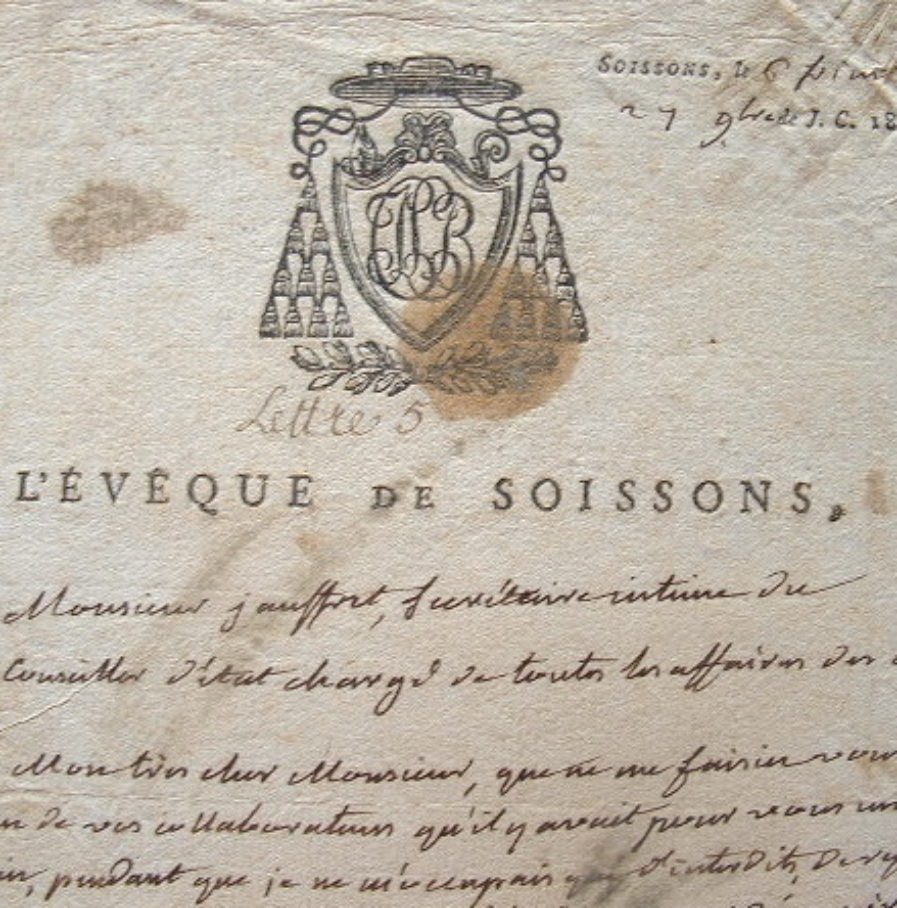 SOISSONS, le 6
27 9bre de J. C. 18
JCLB
Lettre 5
L'ÉVÊQUE DE SOISSONS,
Monsieur jauffret, Secrétaire intime du
Conseiller d'état chargé de toutes les affaires des
Mon très cher Monsieur, que ne me faisiez vous
un de vos collaborateurs qu'il y avait pour vous un
pendant que je ne m'occupais que d'interdits, de